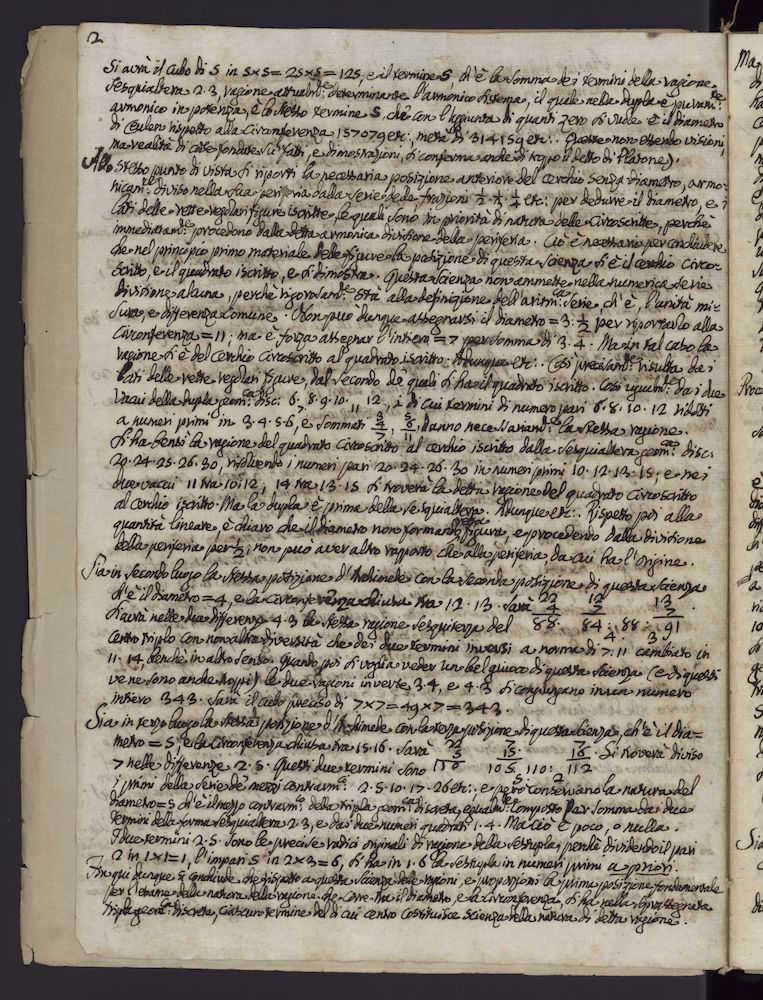 2
Si avrà il Cubo di 5 in 5×5=25×5=125, e il termine 5 ch'è la somma dei termini della ragione
sesquialtera 2.3, ragione determina l'armonico sistema, il quale nella dupla è
armonico in potenza, è lo stesso termine 5, che con l'aggiunta di quanti zero si vuole è il diametro
di Ceulen rispetto alla Circonferenza 157079 etc:, metà di 314159 etc:. Queste non essendo visioni,
ma realità di cose fondate su fatti, e dimostrazioni, si conferma anche di troppo il detto di Platone).
Allo stesso punto di vista si riporti la necessaria posizione anteriore del cerchio senza diametro, armo-
nicam.te diviso nella sua periferia dalla serie delle frazioni ½ . ⅓ . ¼ etc: per dedurre il diametro, e i
lati delle rette regolari figure iscritte, le quali sono in priorità di natura delle Circoscritte, perchè
immediatam.te procedono dalla detta armonica divisione della periferia. Ciò è necessario per conchiudere
che nel principio primo materiale delle figure la posizione di questa scienza si è il cerchio circo-
scritto, e il quadrato iscritto, e si dimostra. Questa scienza non ammette nella numerica serie
divisione alcuna, perchè rigorosam.te stà alla definizione dell'aritm.ca serie ch'è, l'unità mi-
sura, e differenza comune. Non può dunque assegnarsi il diametro = 3 : ½ per riportarlo alla
Circonferenza = 11; ma è forza assegnar l'intiero = 7 per somma di 3.4. Ma in tal caso la
ragione si è del Cerchio Circoscritto al quadrato iscritto. Adunque etc:. Così precisam.te risulta dai
lati delle rette regolari figure, dal secondo de' quali si ha il quadrato iscritto. Così ugualm.te dai due
vacui della dupla geom.ca disc: 6 . 8 . 9 . 10 . 12, i di cui termini di numero pari 6 . 8 . 10 . 12 ridotti
7 11
a numeri primi in 3 . 4 . 5 . 6, e sommati 3 4 / 7, 5 6 / 11, danno necessariam.te la stessa ragione.
Si ha bensì la ragione del quadrato circoscritto al cerchio iscritto dalla sesquialtera geom.ca disc:
20 . 24 . 25 . 26 . 30, risolvendo i numeri pari 20 . 24 . 26 . 30 in numeri primi 10 . 12 . 13 . 15; e nei
due vacui 11 tra 10 . 12, 14 tra 13 . 15 si troverà la detta ragione del quadrato Circoscritto
al cerchio iscritto. Ma la dupla è prima della sesquialtera. Adunque etc:. Rispetto poi alla
quantità lineare, è chiaro che il diametro non formando veruna figura, e procedendo dalla divisione
della periferia per ½, non può aver altro rapporto che alla periferia, da cui ha l'origine.
Sia in secondo luogo la stessa posizione d'Archimede con la seconda posizione di questa scienza
ch'è il diametro = 4, e la circonferenza chiusa tra 12 . 13. Sarà 22 12 13
4 7 7
Si avrà nelle due differenze 4.3 la stessa ragione sesquiterza del 88. 84 : 88 : 91
4 . 3
centro triplo con non altra diversità che dei due termini inversi a norma di 7 : 11 cambiato in
11 . 14, benchè in altro senso. Quando poi si voglia veder un bel giuoco di questa scienza (e di questi
ve ne sono anche troppi) le due ragioni inverse 3.4, e 4.3 si congiungano in un numero
intiero 343. Sarà il cubo preciso di 7×7=49×7=343.
Sia in terzo luogo la stessa posizione d'Archimede con la terza posizione di questa scienza, ch'è il dia-
metro = 5, e la circonferenza chiusa tra 15 . 16. Sarà 22 15 16 . Si troverà diviso
5 7 7
7 nelle differenze 2 . 5. Questi due termini sono 110 105 . 110 : 112
5 : 2
i primi della serie de' mezzi contrarm.ci 2 . 5 . 10 . 17 . 26 etc:, e però conservano la natura del
diametro = 5 ch'è il mezzo contrarm.co della tripla geom.ca discreta, egualm.te composto per somma da' due
termini della forma sesquialtera 2.3, e da' due numeri quadrati 1 . 4. Ma ciò è poco, o nulla.
I due termini 2 . 5 sono le precise radici originali di ragione della sestupla, perchè dividendo il pari
2 in 1×1=1, l'impari 5 in 2×3=6, si ha in 1 . 6 la sestupla in numeri primi a priori.
Fin qui dunque si conchiude che rispetto a questa scienza delle ragioni, e proporzioni la prima posizione fondamentale
per l'esame della natura della ragione che corre tra il diametro, e la circonferenza, si ha nella sopra assegnata
tripla geom.ca discreta, ciascun termine del di cui centro costituisce scienza nella natura di detta ragione.